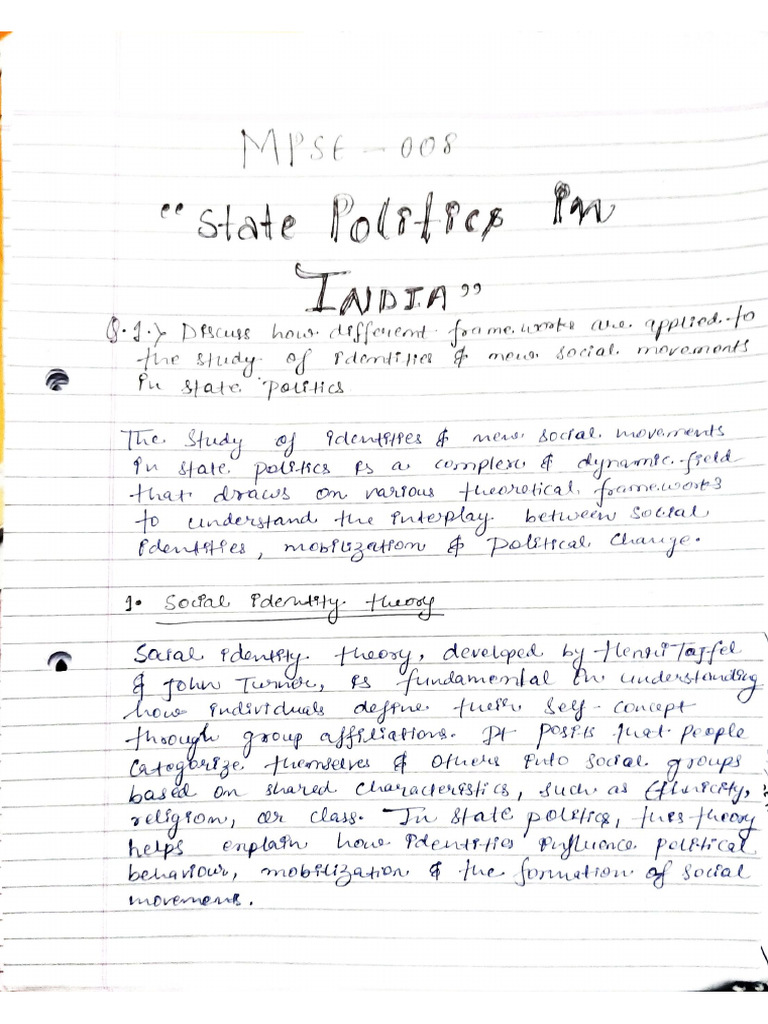 MPSE - 008
"State Politics in
INDIA"
Q.1.) Discuss how different frameworks are applied to
the study of identities & new social movements
in state politics
The study of identities & new social movements
in state politics is a complex & dynamic field
that draws on various theoretical frameworks
to understand the interplay between social
identities, mobilization & Political change.
1. Social identity theory
Social identity theory, developed by Henri Tajfel
& John Turner, is fundamental in understanding
how individuals define their self-concept
through group affiliations. It posits that people
categorize themselves & others into social groups
based on shared characteristics, such as Ethnicity,
religion, or class. In state politics, this theory
helps explain how identities influence political
behaviour, mobilization & the formation of social
movement.